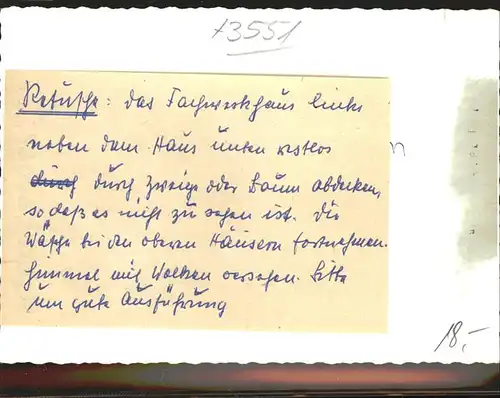 +3551
Retusche: das Fachwerkhaus links
neben dem Haus unten restlos
durch durch Zweige oder Baum abdecken,
so daß es nicht zu sehen ist. Die
Wäsche bei den oberen Häusern fortnehmen.
Himmel mit Wolken versehen. Bitte
um gute Ausführung
18,-